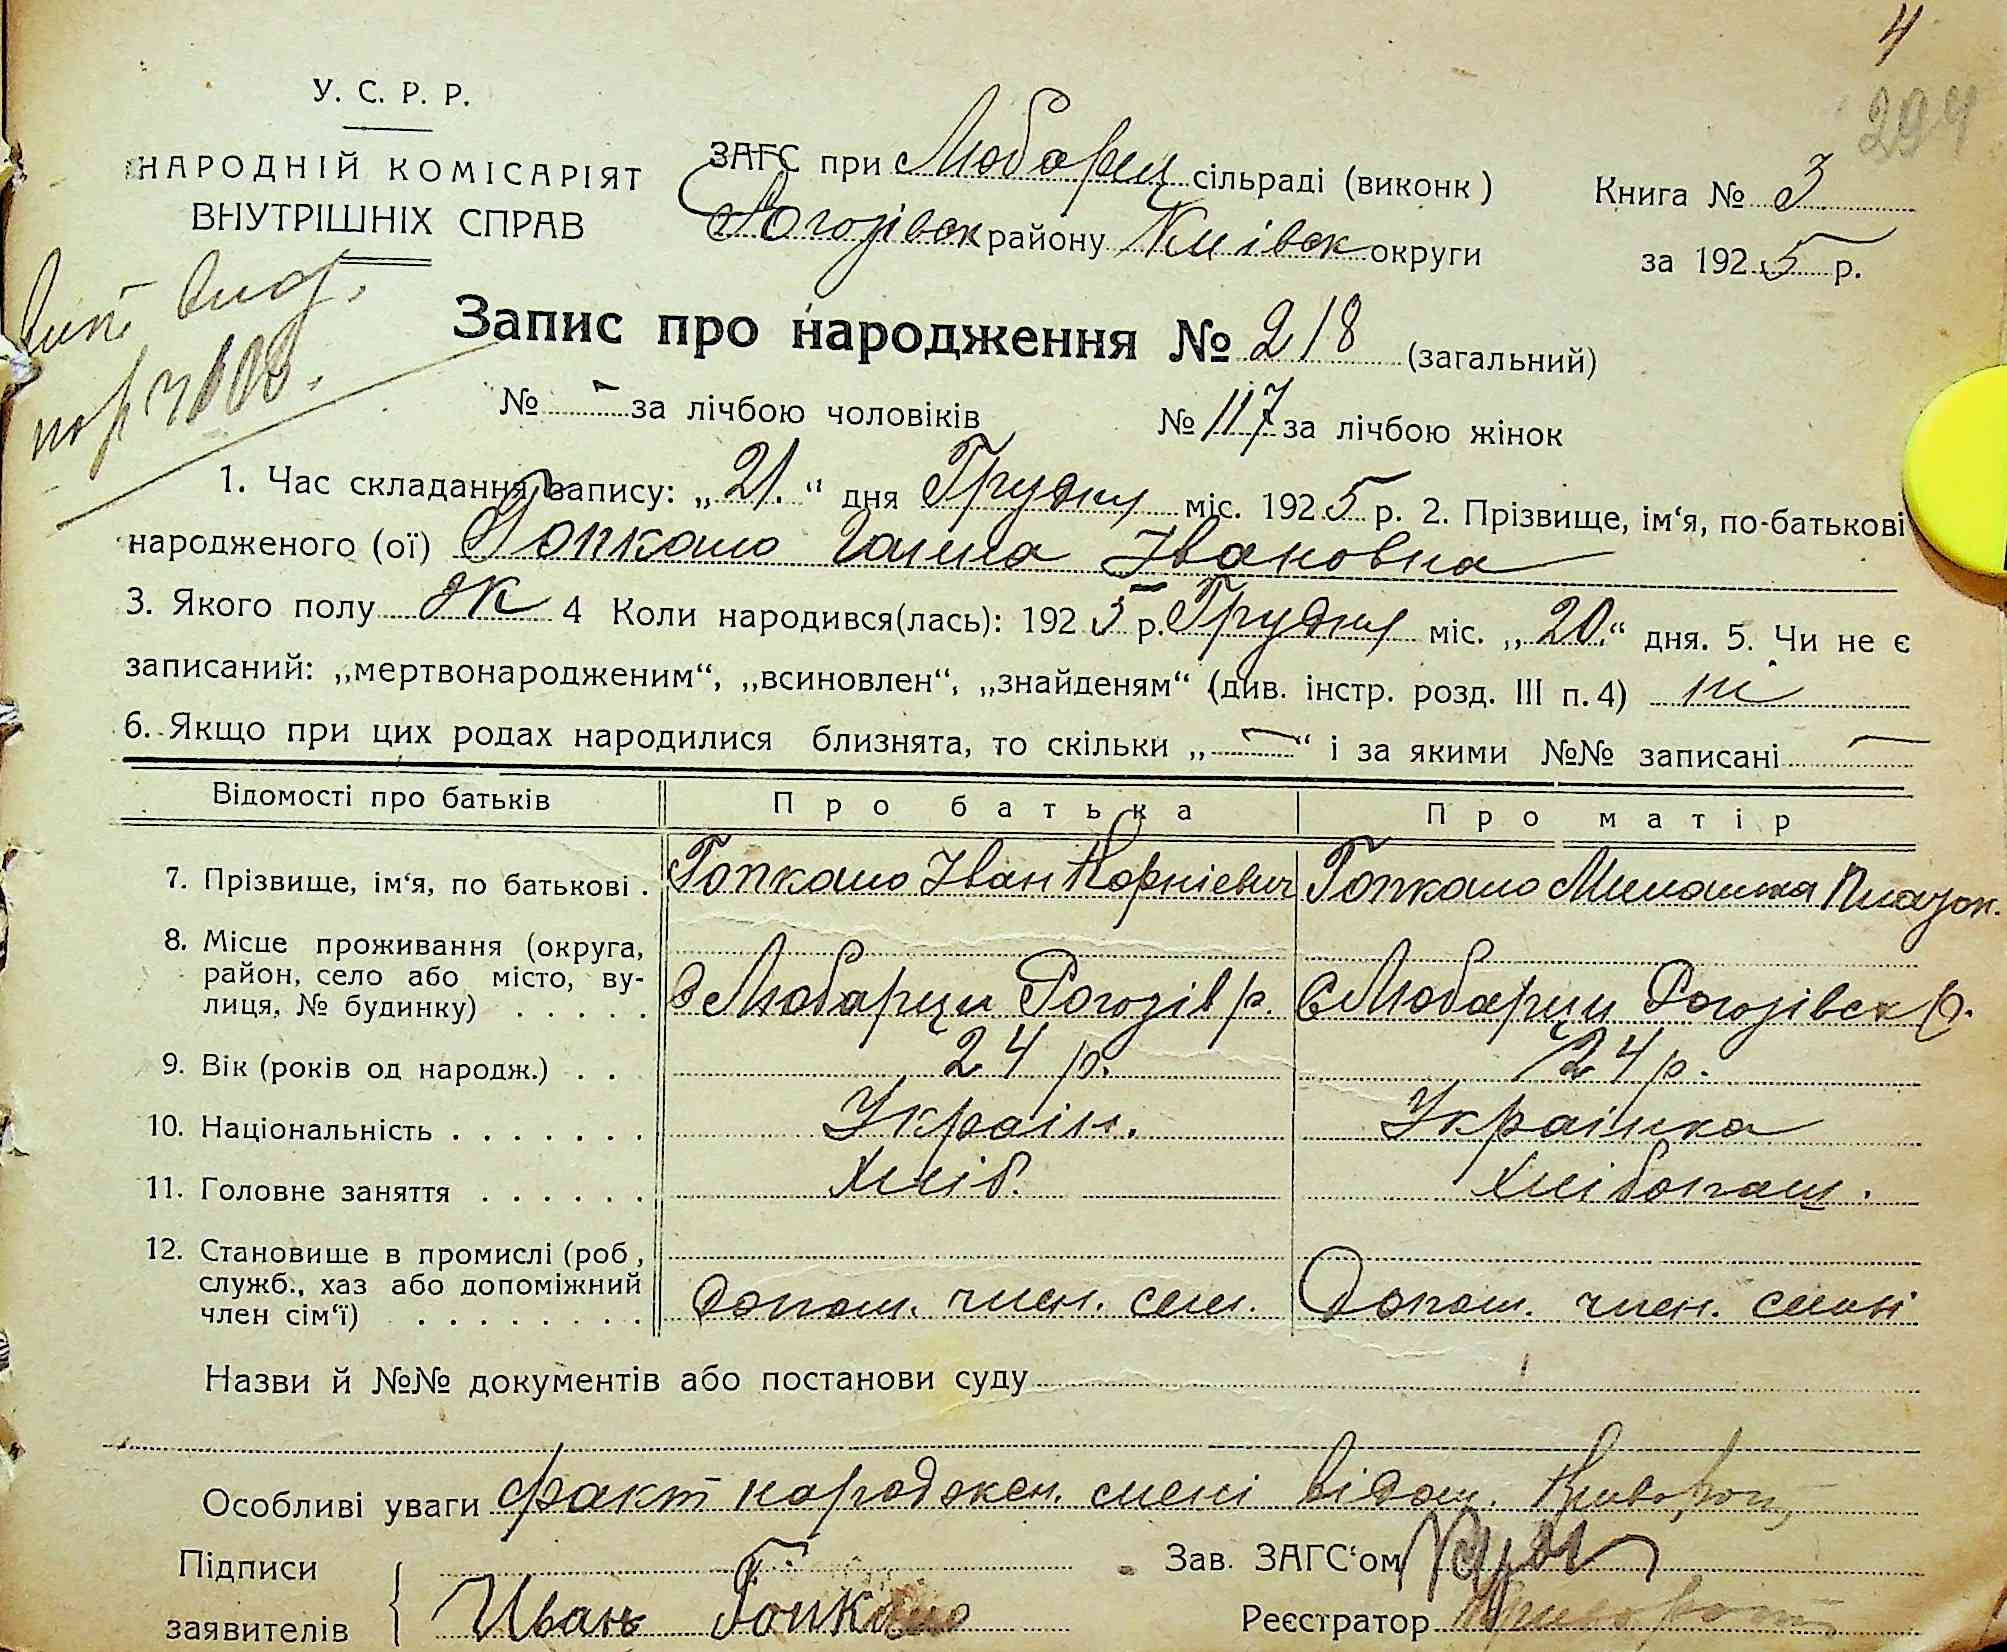 4
294
У. С. Р. Р.
НАРОДНІЙ КОМІСАРІЯТ
ВНУТРІШНІХ СПРАВ
ЗАГС при Любарец сільраді (виконк)
Рогозівск району Київск округи
Книга № 3
за 1925 р.
Запис про народження № 218 (загальний)
№ - за лічбою чоловіків № 117 за лічбою жінок
1. Час складання запису: „21.“ дня Грудня міс. 1925 р. 2. Прізвище, ім‘я, по-батькові
народженого (ої) Гопкало Галина Івановна
3. Якого полу ж 4 Коли народився(лась): 1925 р. Грудня міс. „20.“ дня. 5. Чи не є
записаний: „мертвонародженим“, „всиновлен“, „знайденям“ (див. інстр. розд. III п. 4) ні
6. Якщо при цих родах народилися близнята, то скільки „—“ і за якими №№ записані —
Відомості про батьків Про батька Про матір
7. Прізвище, ім‘я, по батькові . Гопкало Іван Корнієвич Гопкало
8. Місце проживання (округа,
район, село або місто, ву-
лиця, № будинку) . . . . . Любарци Рогозів р. с Любарци Рогозівск р.
9. Вік (років од народж.) . . 24 р. 24 р.
10. Національність . . . . . . . Україн. Українка
11. Головне заняття . . . . . . Хліб. Хлібопаш.
12. Становище в промислі (роб,
служб., хаз або допоміжний
член сім‘ї) . . . . . . . . Допом. член. сем. Допом. член. семьі
Назви й №№ документів або постанови суду
Особливі уваги факт народжен. мені відом.
Підписи
заявителів Иванъ Гопкало
Зав. ЗАГС‘ом
Реєстратор